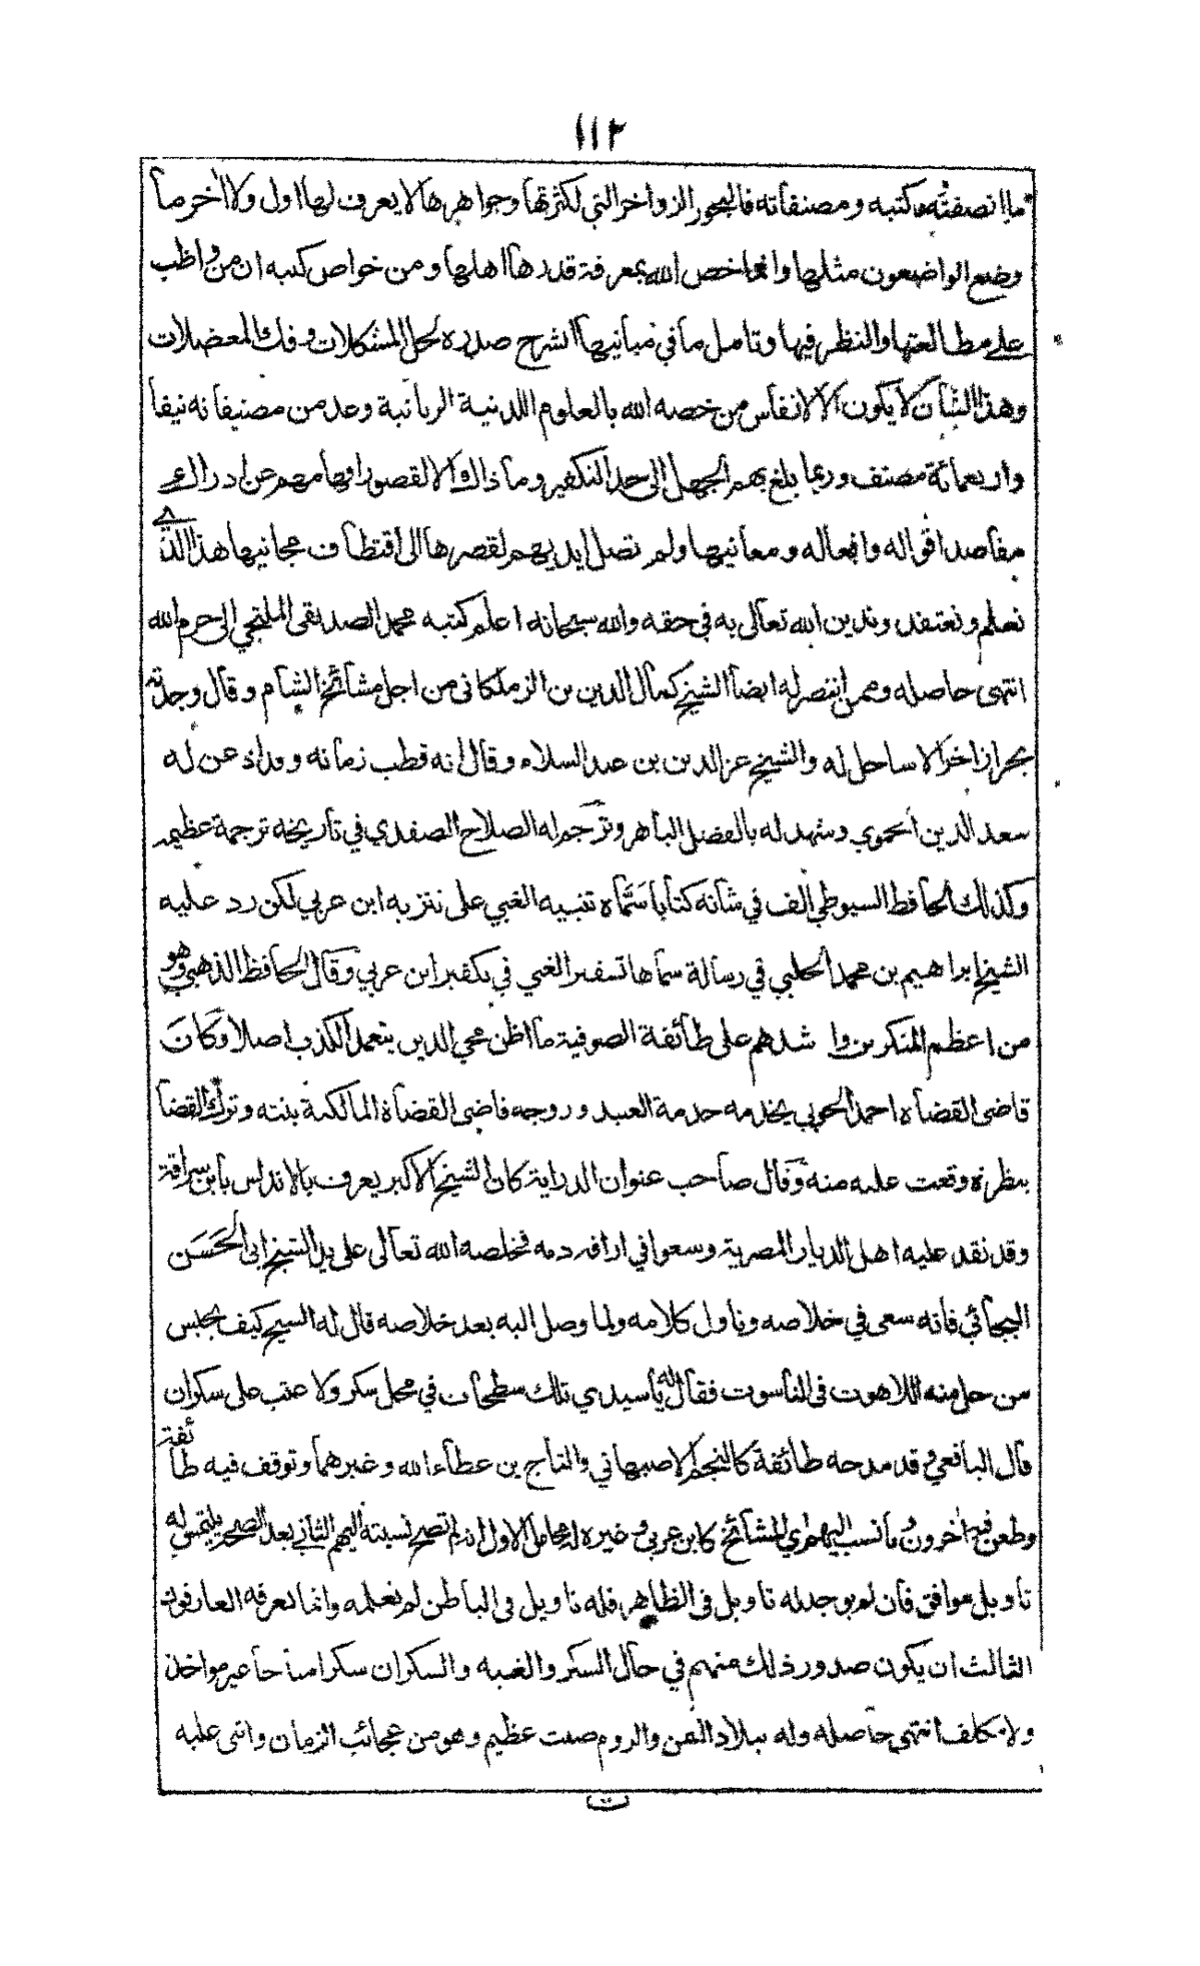 ١١٢
ما انصفته وكتبه ومصنفاته فالبحور الزواخر التي لكثرتها وجواهرها لا يعرف لها اول ولا اخر ما
وضع الواضعون مثلها وانما خص الله بمعرفة قدرها اهلها ومن خواص كتبه ان من واظب
على مطالعتها والنظر فيها وتامل ما في مبانيها انشرح صدره لحل المشكلات وفك المعضلات
وهذا الشان لا يكون الا لانفاس من خصه الله بالعلوم اللدنية الربانية وعد من مصنفاته نيفا
واربعمائة مصنف وربما بلغ بهم الجهل الى حد التكفير وما ذاك الا لقصور افهامهم عن ادراك
مقاصد اقواله وافعاله ومعانيها ولم تصل ايديهم لقصرها الى اقتطاف مجانيها هذا الذي
نعلم ونعتقد وندين الله تعالى به في حقه والله سبحانه اعلم كتبه محمد الصديقى الملتجي الى حرم الله
انتهى حاصله وممن انتصر له ايضا الشيخ كمال الدين بن الزملكانى من اجل مشائخ الشام وقال وجدته
بحرا زاخرا لا ساحل له والشيخ عز الدين بن عبد السلام وقال انه قطب زمانه و عن له
سعد الدين الحموي وشهد له بالفضل الباهر وترجم له الصلاح الصفدي في تاريخه ترجمة عظيمه
وكذلك الحافظ السيوطي الف في شانه كتابا سَمَّاه تنبيه الغبي على تنزيه ابن عربي لكن رد عليه
الشيخ ابراهيم بن محمد الحلبي في رسالة سماها تسفيه الغبي في تكفير ابن عربي وقال الحافظ الذهبي وهو
من اعظم المنكرين وا شدهم على طائفة الصوفية ما اظن محي الدين يتعمد الكذب اصلا وَكانَ
قاضى القضاه احمد الخويي يخدمه خدمة العبيد وزوجه قاضى القضاة المالكية بنته وترك القضا
بنظرة وقعت عليه منه وقال صاحب عنوان الدراية كان الشيخ الاكبر يعرف بالاندلس بابن سراقة
وقد نقد عليه اهل الديار المصرية وسعوا في اراقه دمه فخلصه الله تعالى على يد الشيخ ابى الحَسَن
البجائي فانه سعى في خلاصه وتاول كلامه ولما وصل اليه بعد خلاصه قال له الشيخ كيف يحبس
من حل منه اللاهوت فى الناسوت فقال له يا سيدي تلك شطحات في محل سكر ولا عتب على سكران
قال اليافعي وقد مدحه طائفة كالنجم الاصبهاني والتاج بن عطاء الله وغيرهما وتوقف فيه طائفة
وطعن فيه اخرون وما نسب اليهم اي المشائخ كابن عربي وغيره له محامل الاول انه لم تصح نسبته اليهم الثاني بعد الصحة يلتمس له
تاويل موافق فان لم يوجد له تاويل فى الظاهر فله تاويل فى الباطن لم نعلمه وانما يعرفه العارفون
الثالث ان يكون صدور ذلك منهم في حال السكر والغيبه والسكران سكرا مباحا غير مواخذ
ولا مكلف انتهى حاصله وله ببلاد اليمن والروم صيت عظيم وهو من عجائب الزمان واثنى عليه
ت